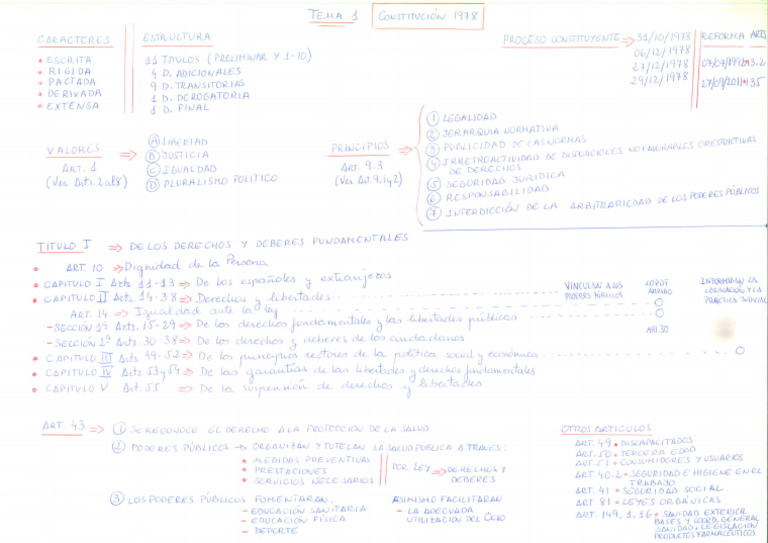 TEMA 1 CONSTITUCIÓN 1978
CARACTERES
• ESCRITA
• RÍGIDA
• PACTADA
• DERIVADA
• EXTENSA
ESTRUCTURA
11 TÍTULOS (PRELIMINAR Y 1-10)
4 D. ADICIONALES
9 D. TRANSITORIAS
1 D. DEROGATORIA
1 D. FINAL
PROCESO CONSTITUYENTE ⇒ 31/10/1978
06/12/1978
27/12/1978
29/12/1978
REFORMA ARTS
13.2
135
VALORES ⇒
ART. 1
(Ver Arts. 2 al 8)
Ⓐ LIBERTAD
Ⓑ JUSTICIA
Ⓒ IGUALDAD
Ⓓ PLURALISMO POLÍTICO
PRINCIPIOS ⇒
ART. 9.3
(Ver Art. 9.1 y 2)
① LEGALIDAD
② JERARQUÍA NORMATIVA
③ PUBLICIDAD DE LAS NORMAS
④ IRRETROACTIVIDAD DE DISPOSICIONES NO FAVORABLES O RESTRICTIVAS
DE DERECHOS
⑤ SEGURIDAD JURÍDICA
⑥ RESPONSABILIDAD
⑦ INTERDICCIÓN DE LA ARBITRARIEDAD DE LOS PODERES PÚBLICOS
TÍTULO I ⇒ DE LOS DERECHOS Y DEBERES FUNDAMENTALES
• ART. 10 ⇒ Dignidad de la Persona
• CAPÍTULO I Arts 11-13 ⇒ De los españoles y extranjeros
• CAPÍTULO II Arts. 14-38 ⇒ Derechos y libertades
ART. 14 ⇒ Igualdad ante la ley
- SECCIÓN 1ª Arts. 15-29 ⇒ De los derechos fundamentales y las libertades públicas
- SECCIÓN 2ª Arts. 30-38 ⇒ De los derechos y deberes de los ciudadanos
• CAPÍTULO III Arts 39-52 ⇒ De los principios rectores de la política social y económica
• CAPÍTULO IV Arts. 53 y 54 ⇒ De las garantías de las libertades y derechos fundamentales
• CAPÍTULO V Art. 55 ⇒ De la suspensión de derechos y libertades
VINCULAN A LOS
PODERES PÚBLICOS
AMPARO
ART. 30
INFORMARÁN LA
LEGISLACIÓN Y LA
PRÁCTICA JUDICIAL
ART. 43 ⇒ ① SE RECONOCE EL DERECHO A LA PROTECCIÓN DE LA SALUD
② PODERES PÚBLICOS → ORGANIZAN Y TUTELAN LA SALUD PÚBLICA A TRAVÉS:
• MEDIDAS PREVENTIVAS
• PRESTACIONES
• SERVICIOS NECESARIOS
POR LEY ⇒ DERECHOS Y
DEBERES
③ LOS PODERES PÚBLICOS FOMENTARÁN:
- EDUCACIÓN SANITARIA
- EDUCACIÓN FÍSICA
- DEPORTE
ASIMISMO FACILITARÁN
- LA ADECUADA
UTILIZACIÓN DEL OCIO
OTROS ARTÍCULOS
ART. 49 • DISCAPACITADOS
ART. 50 • TERCERA EDAD
ART. 51 • CONSUMIDORES Y USUARIOS
ART. 40.2 • SEGURIDAD E HIGIENE EN EL
TRABAJO
ART. 41 • SEGURIDAD SOCIAL
ART 81 • LEYES ORGÁNICAS
ART. 149, 1. 16 • SANIDAD EXTERIOR
BASES Y COORD. GENERAL
SANIDAD, LEGISLACIÓN
PRODUCTOS FARMACÉUTICOS